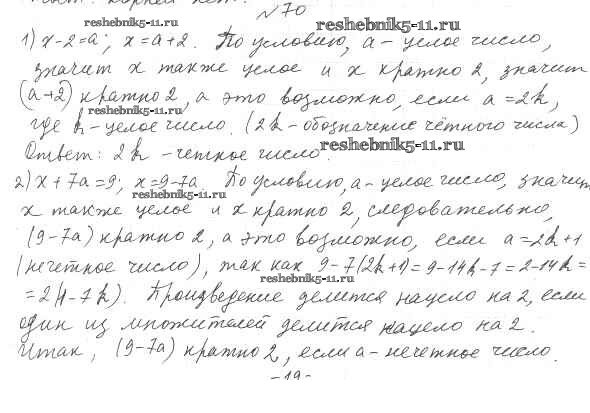 №70
reshebnik5-11.ru
reshebnik5-11.ru
1) x-2=a; x=a+2. По условию, a - целое число,
значит x также целое и x кратно 2, значит
(a+2) кратно 2, а это возможно, если a=2k,
reshebnik5-11.ru
где k - целое число. (2k - обозначение чётного числа)
Ответ: 2k - четное число.
reshebnik5-11.ru
2) x+7a=9; x=9-7a. По условию, a - целое число, значит
reshebnik5-11.ru
x также целое и x кратно 2, следовательно,
(9-7a) кратно 2, а это возможно, если a=2k+1
(нечетное число), так как 9-7(2k+1)=9-14k-7=2-14k=
reshebnik5-11.ru
=2(1-7k). Произведение делится нацело на 2, если
один из множителей делится нацело на 2.
Итак, (9-7a) кратно 2, если a - нечетное число.
reshebnik5-11.ru
-19-